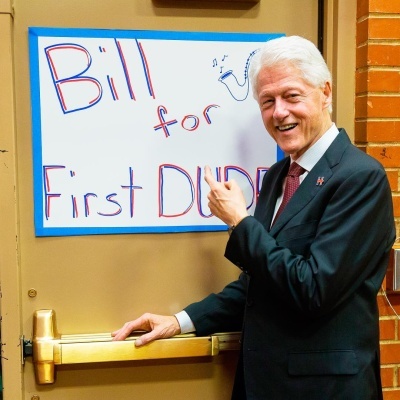 Bill
for
First DUDE